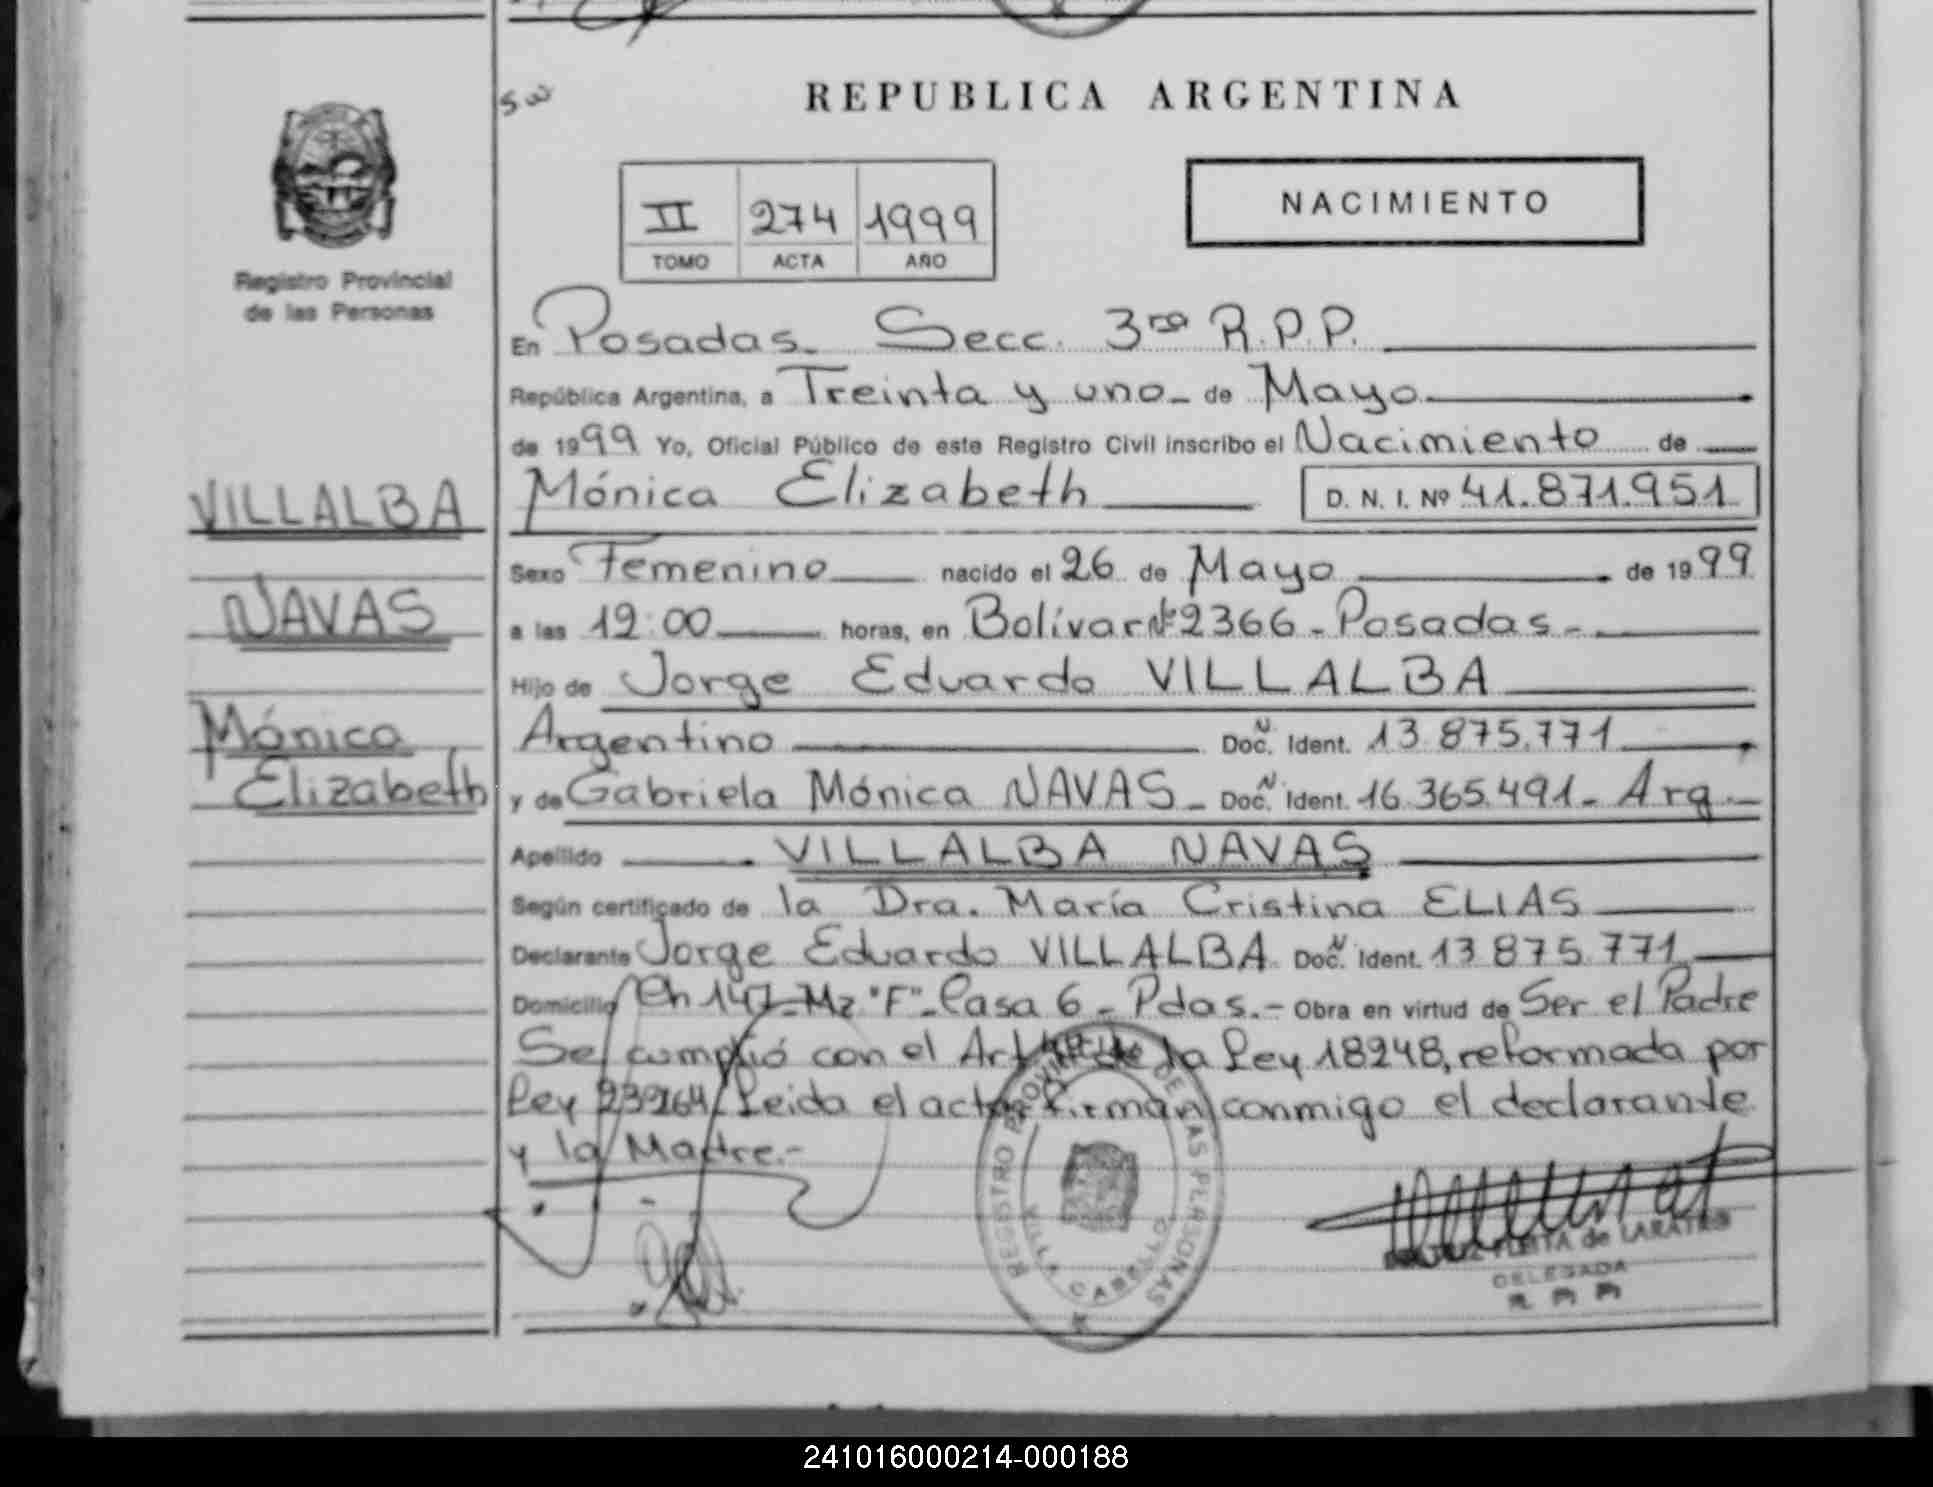 REPUBLICA ARGENTINA
NACIMIENTO
II 274 1999
TOMO ACTA AÑO
Registro Provincial
de las Personas
VILLALBA
NAVAS
Mónica
Elizabeth
En Posadas. Secc. 3ra R.P.P.
República Argentina, a Treinta y uno de Mayo
de 1999 Yo, Oficial Público de este Registro Civil inscribo el Nacimiento de
Mónica Elizabeth D. N. I. Nº 41.871.951
Sexo Femenino nacido el 26 de Mayo de 1999
a las 12:00 horas, en Bolívar Nº 2366 - Posadas -
Hijo de Jorge Eduardo VILLALBA
Argentino Doc. N Ident. 13.875.771
y de Gabriela Mónica NAVAS - Doc. N Ident. 16.365.491 - Arg.
Apellido VILLALBA NAVAS
Según certificado de la Dra. María Cristina ELIAS
Declarante Jorge Eduardo VILLALBA Doc. N Ident. 13.875.771
Domicilio Ch 147 - Mz "F" - Casa 6 - Pdas. - Obra en virtud de Ser el Padre
Se cumplió con el Art de la Ley 18248, reformada por
Ley 23264. Leida el acta firman conmigo el declarante
y la Madre.-
REGISTRO PROVINCIAL DE LAS PERSONAS
VILLA CABELLO
de LARATRO
DELEGADA
241016000214-000188